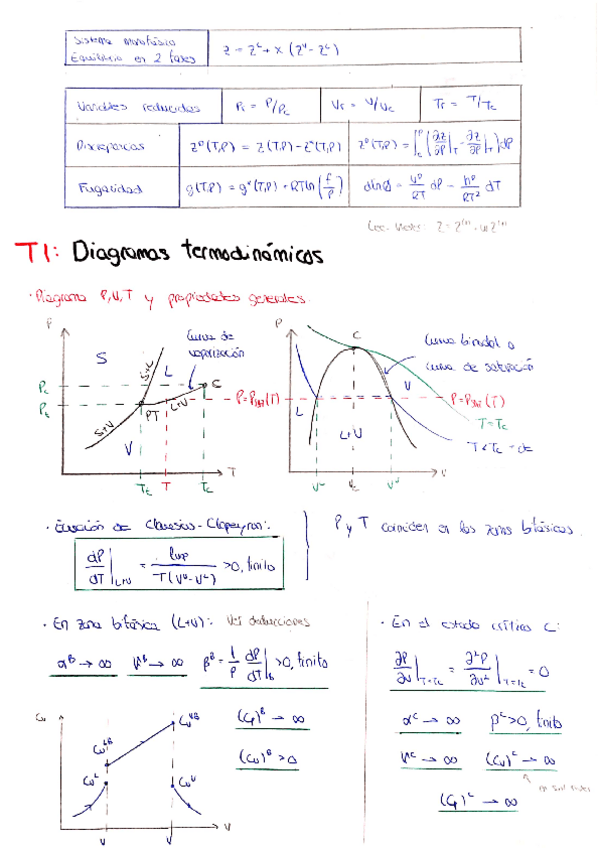 Sistema monofásico
Equilibrio en 2 fases
z = zᴸ + x (zⱽ - zᴸ)
Variables reducidas
Pr = P/Pc
Vr = V/Vc
Tr = T/Tc
Discrepancias
z°(T,P) = z(T,P) - z*(T,P)
Fugacidad
g(T,P) = g°(T,P) + RTln(f/P)
T1: Diagramas termodinámicos
· Diagrama P,V,T y propiedades generales
P
S
S+L
L
Curva de
vaporización
C
Pc
Pt
PT
L+V
S+V
V
P=Psat(T)
Tt
T
Tc
T
P
C
Curva binodal o
curva de saturación
L
V
L+V
P=Psat(T)
T=Tc
T<Tc = cte
Vᴸ
Vc
Vⱽ
V
· Ecuación de Clausius-Clapeyron:
dP/dT|L+V = lvap / T(Vⱽ-Vᴸ) >0, finito
P y T coinciden en las zonas bifásicas
· En zona bifásica (L+V): Ver deducciones
αᴮ → ∞
κᴮ → ∞
βᴮ = 1/P dP/dT|B >0, finito
(Cp)ᴮ → ∞
(Cv)ᴮ > 0
Cv
Cvᴸᴮ
Cvⱽᴮ
Cvᴸ
Cvⱽ
V
V
V
· En el estado crítico C:
∂P/∂V|T=Tc = ∂²P/∂V²|T=Tc = 0
αᶜ → ∞
βᶜ>0, finito
κᶜ → ∞
(Cv)ᶜ → ∞
(Cp)ᶜ → ∞